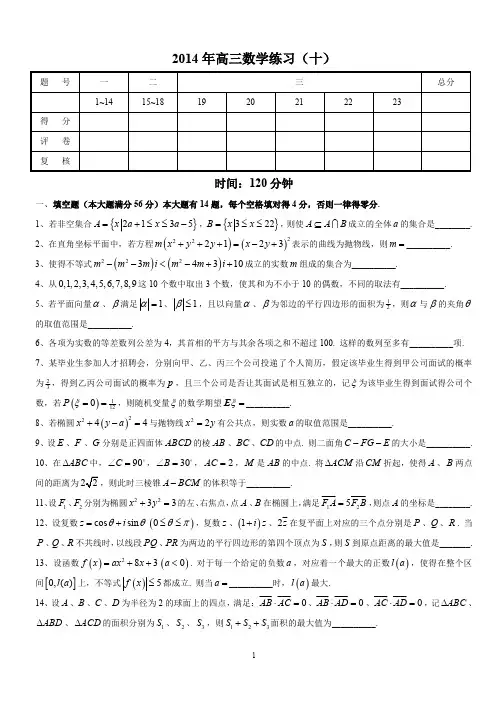 2014年高三数学练习（十）
题 号 一 二 三 总分
1~14 15~18 19 20 21 22 23
得 分
评 卷
复 核
时间：120分钟
一、填空题（本大题满分56分）本大题有14题，每个空格填对得4分，否则一律得零分.
1、若非空集合 A={x|2a+1≤x≤3a-5}，B={x|3≤x≤22}，则使 A⊆A∩B 成立的全体a的集合是________.
2、在直角坐标平面中，若方程 m(x²+y²+2y+1)=(x-2y+3)² 表示的曲线为抛物线，则m=__________.
3、使得不等式 m²-(m²-3m)i<(m²-4m+3)i+10 成立的实数m组成的集合为__________.
4、从0,1,2,3,4,5,6,7,8,9这10个数中取出3个数，使其和为不小于10的偶数，不同的取法有__________.
5、若平面向量α、β满足|α|=1、|β|≤1，且以向量α、β为邻边的平行四边形的面积为1/2，则α与β的夹角θ
的取值范围是__________.
6、各项为实数的等差数列公差为4，其首相的平方与其余各项之和不超过100. 这样的数列至多有__________项.
7、某毕业生参人才招聘会，分别向甲、乙、丙三个公司投递了个人简历，假定该毕业生得到甲公司面试的概率
为2/3，得到乙丙公司面试的概率为p，且三个公司是否让其面试是相互独立的，记ξ为该毕业生得到面试得公司个
数，若P(ξ=0)=1/12，则随机变量ξ的数学期望Eξ=__________.
8、若椭圆 x²+4(y-a)²=4 与抛物线 x²=2y 有公共点，则实数a的取值范围是__________.
9、设E、F、G分别是正四面体ABCD的棱AB、BC、CD的中点. 则二面角C-FG-E的大小是__________.
10、在ΔABC中，∠C=90°，∠B=30°，AC=2，M是AB的中点. 将ΔACM沿CM折起，使得A、B两点
间的距离为2√2，则此时三棱锥A-BCM的体积等于__________.
11、设F₁、F₂分别为椭圆 x²+3y²=3 的左、右焦点，点A、B在椭圆上，满足F₁A=5F₂B，则点A的坐标是________.
12、设复数 z=cosθ+i sinθ (0≤θ≤π)，复数z、(1+i)z、2z̄在复平面上对应的三个点分别是P、Q、R. 当
P、Q、R不共线时，以线段PQ、PR为两边的平行四边形的第四个顶点为S，则S到原点距离的最大值是_______.
13、设函数 f(x)=ax²+8x+3 (a<0). 对于每一个给定的负数a，对应着一个最大的正数l(a)，使得在整个区
间[0,l(a)]上，不等式|f(x)|≤5都成立. 则当a=__________时，l(a)最大.
14、设A、B、C、D为半径为2的球面上的四点，满足：AB·AC=0、AB·AD=0、AC·AD=0，记ΔABC、
ΔABD、ΔACD的面积分别为S₁、S₂、S₃，则S₁+S₂+S₃面积的最大值为__________.
1